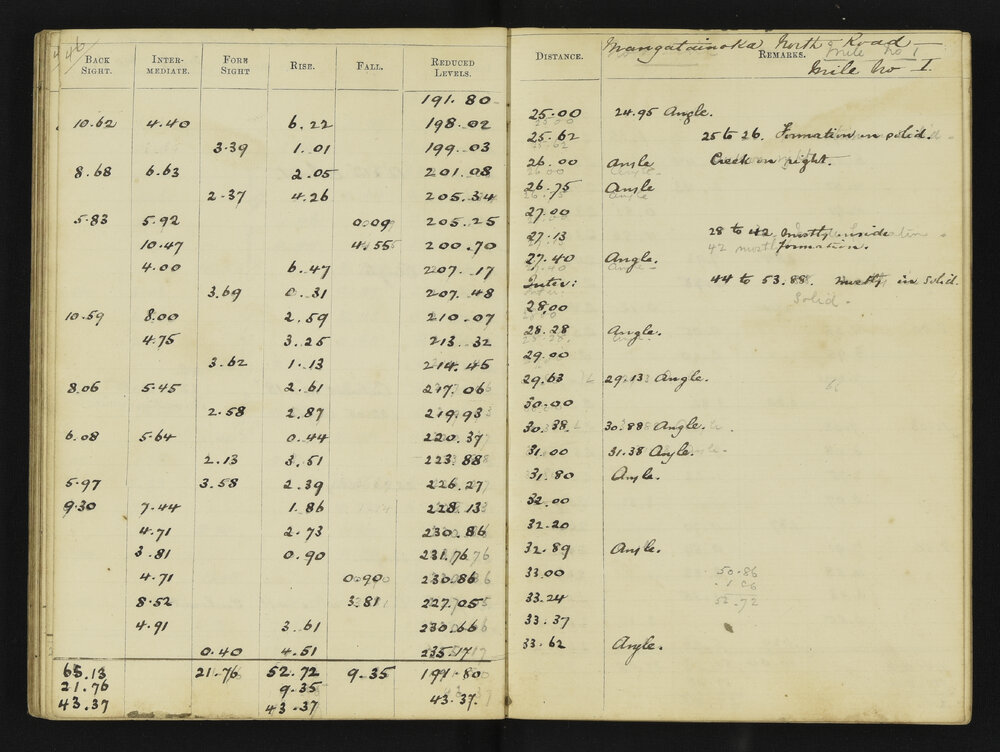 46
Back Sight. Inter-mediate. Fore Sight Rise. Fall. Reduced Levels.
191.80
10.62 4.40 6.22 198.02
3.39 1.01 199.03
8.68 6.63 2.05 201.08
2.37 4.26 205.34
5.83 5.92 0.09 205.25
10.47 4.55 200.70
4.00 6.47 207.17
3.69 0.31 207.48
10.59 8.00 2.59 210.07
4.75 3.25 213.32
3.62 1.13 214.45
8.06 5.45 2.61 217.06
2.58 2.87 219.93
6.08 5.64 0.44 220.37
2.13 3.51 223.88
5.97 3.58 2.39 226.27
9.30 7.44 1.86 228.13
4.71 2.73 230.86
3.81 0.90 231.76
4.71 0.90 230.86
8.52 3.81 227.05
4.91 3.61 230.66
0.40 4.51 235.17
65.13 21.76 52.72 9.35 191.80
21.76 9.35
43.37 43.37 43.37.
Mangatainoka North Road
Distance. Remarks. Mile No 1
Mile No I.
25.00 24.95 Angle.
25.62 25 to 26. Formation in solid.
26.00 Angle Creek on right.
26.75 Angle
27.00
27.13 28 to 42 mostly inside
formation.
27.40 Angle.
Inter: 44 to 53.88. mostly in solid.
Solid.
28.00
28.28 Angle.
29.00
29.63 29.13 Angle.
30.00
30.38. 30.88 Angle.
31.00 31.38 Angle.
31.80 Angle.
32.00
32.20
32.89 Angle.
33.00 50.86
1.86
33.24 52.72
33.37
33.62 Angle.